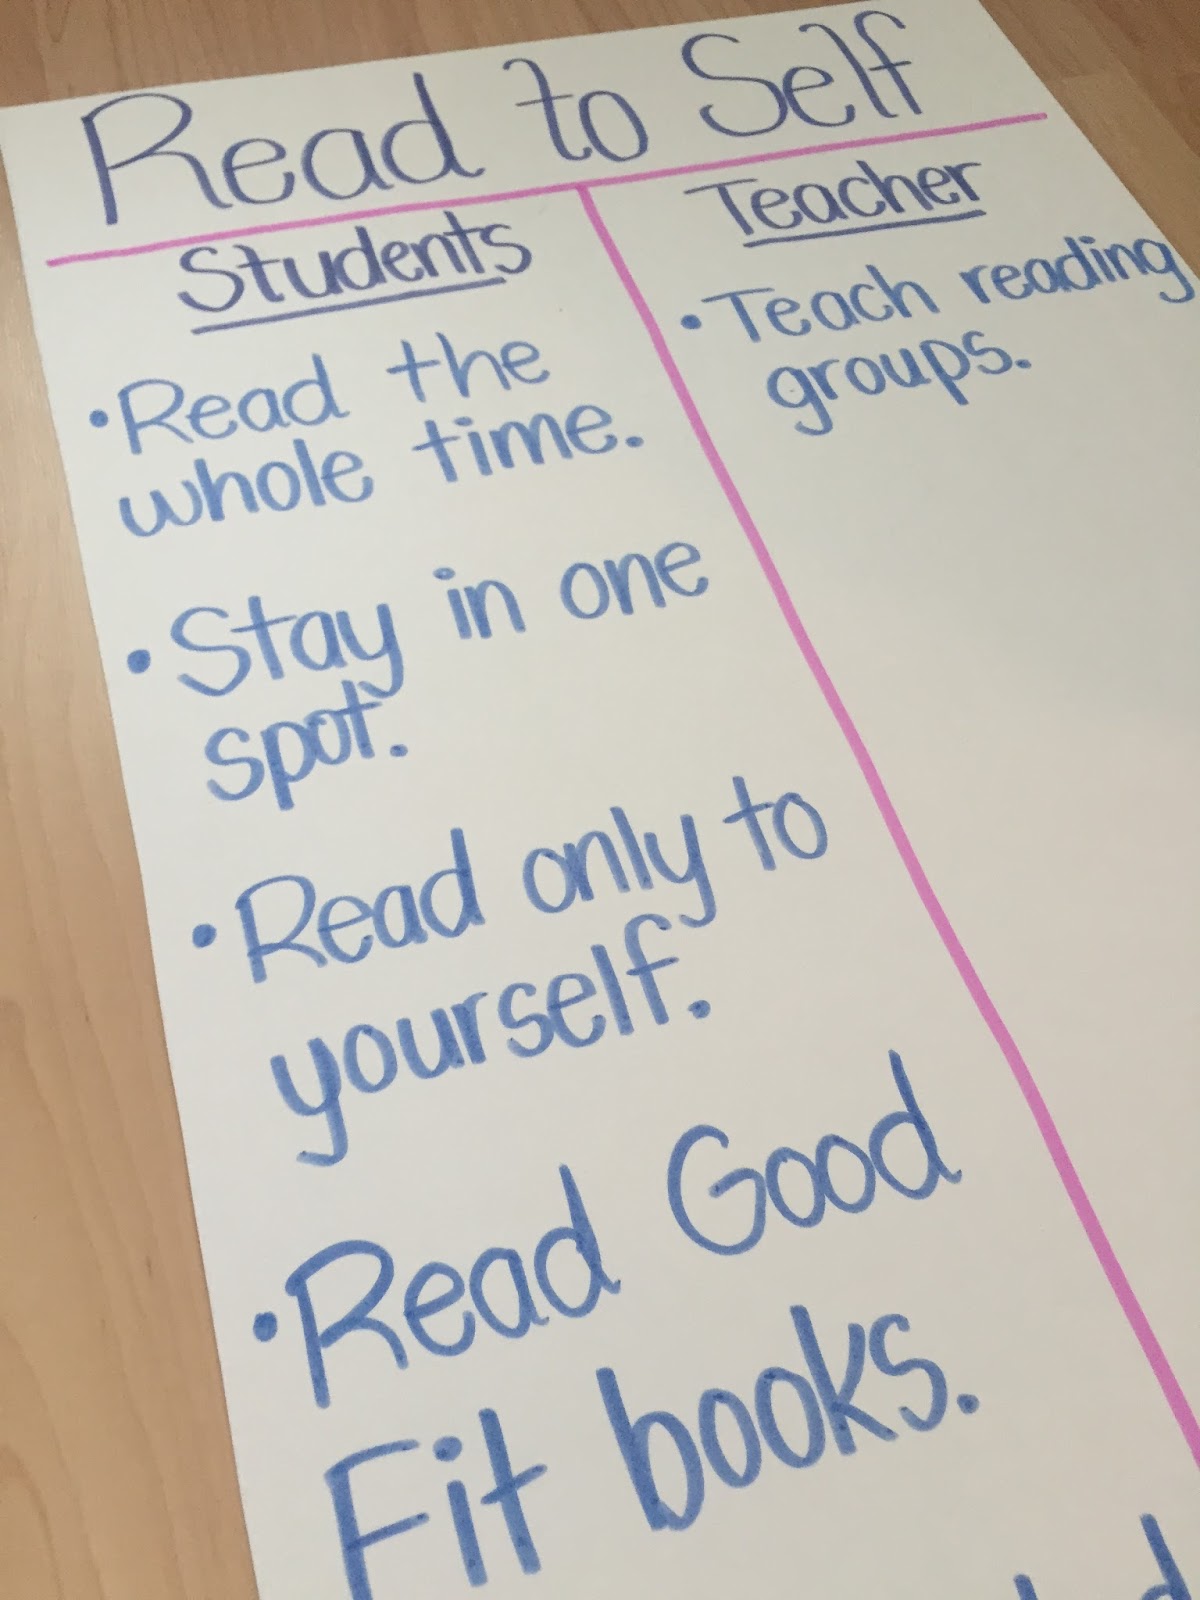 Read to Self
Students
• Read the
whole time.
• Stay in one
spot.
• Read only to
yourself.
• Read Good
Fit books.
Teacher
• Teach reading
groups.